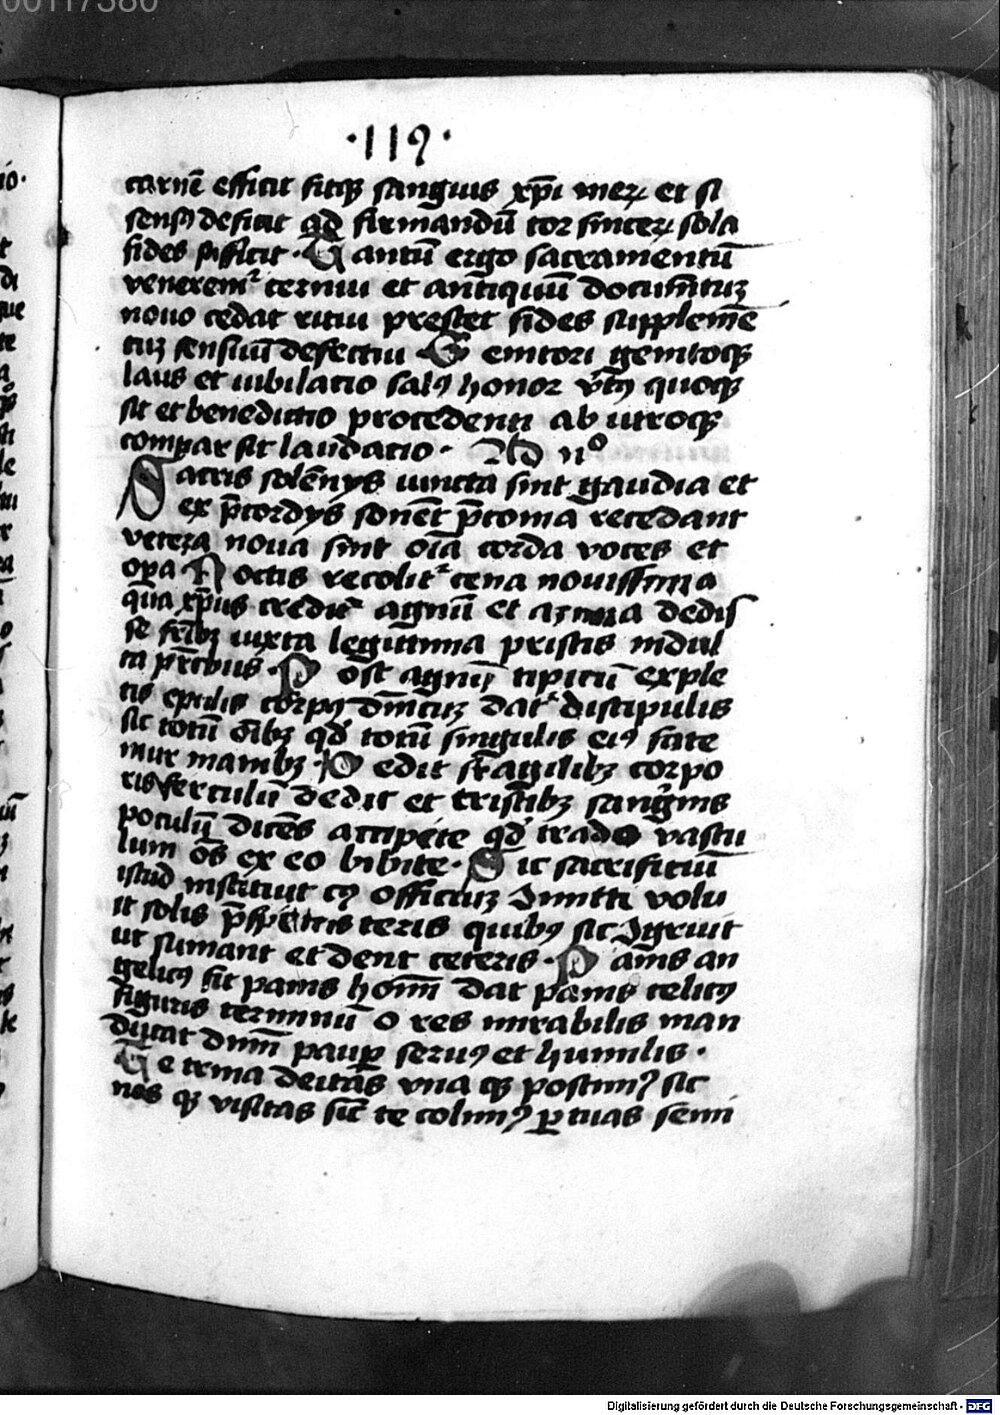 00117380
·119·
carnē efficit fitqꝫ sanguis xp̄i meꝝ et si
sensꝰ deficit qd firmandū cor sinceꝝ sola
fides sufficit · Tantū ergo sacramentū
veneremᷣ cernui et antiquū documētuꝫ
nouo cedat ritui prestet fides supplemē
tuꝫ sensuū defectui Genitori genitoqꝫ
laus et iubilatio salꝰ honor v̄tꝰ quoqꝫ
sit et benedictio procedenti ab utroqꝫ
compar sit laudatio · Ad nᵒ
Sacris solēnys iuncta sint gaudia et
ex p̄cordys sonēt p̄conia recedant
vetera noua sint oīa corda voces et
opa Noctis recolitᷣ cena nouissima
qua xp̄us creditᷣ agnū et azima dedis
se fr̄ibꝫ iuxta legittima priscis indul
ta pr̄ibus · Post agnū tipicū exple
tis epulis corpꝰ dn̄icuꝫ datᷣ discipulis
sic totū oībꝫ qd totū singulis eiꝰ fate
mur manibꝫ · Dedit fragilibꝫ corpo
ris ferculū dedit et tristibꝫ sanguinis
poculū dicēs accipite qd trado vascu
lum oēs ex eo bibite · Sic sacrificiū
istud instituit cꝰ officiuꝫ Imitti volu
it solis p̄spiteris ceris quibꝰ sic Igruit
ut sumant et dent ceteris · Panis an
gelicꝰ fit panis hoīm dat panis celicꝰ
figuris terminū o res mirabilis man
ducat dnm̄ paup seruꝰ et humilis ·
Te trina deitas vna qꝫ poscimꝰ sic
nos qꝫ visitas sic̄ te colimꝰ p tuas semi
Digitalisierung gefördert durch die Deutsche Forschungsgemeinschaft - DFG